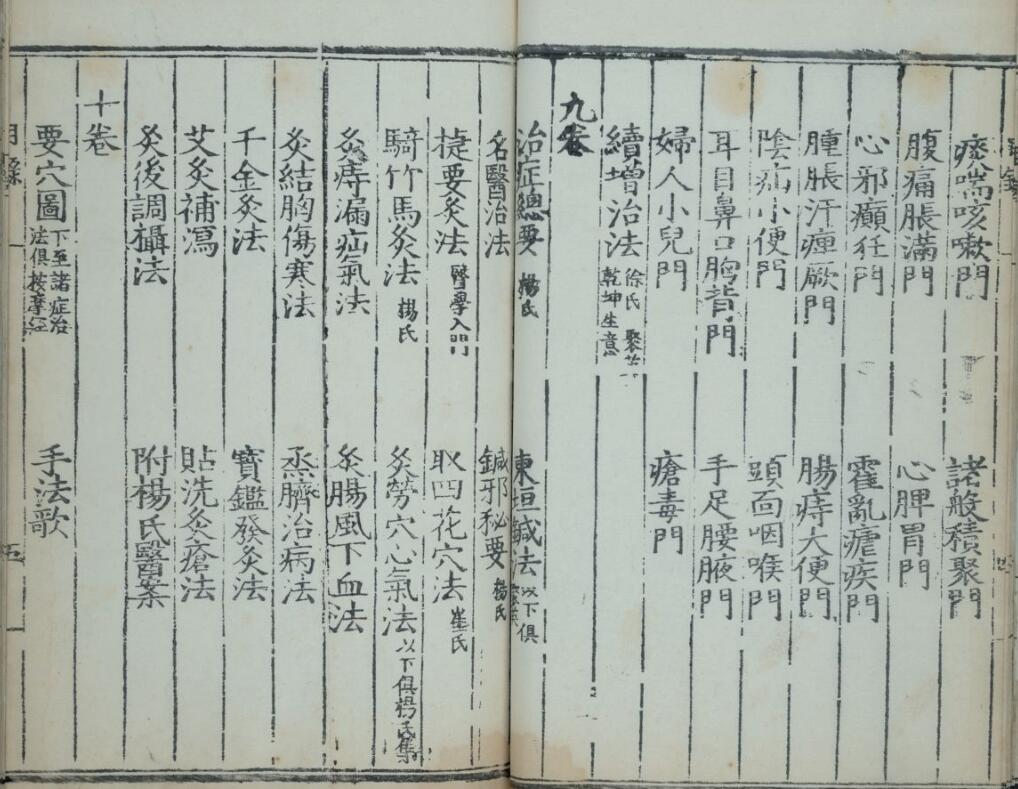 痰喘咳嗽門 諸般積聚門
腹痛脹滿門 心脾胃門
心邪癲狂門 霍亂瘧疾門
腫脹汗痺厥門 腸痔大便門
陰疝小便門 頭面咽喉門
耳目鼻口胸背門 手足腰腋門
婦人小兒門 瘡毒門
續增治法 徐氏 聚英 乾坤生意
九卷
治症總要 楊氏 東垣鍼法 以下俱
名醫治法 鍼邪秘要 楊氏
捷要灸法 醫學入門 取四花穴法 崔氏
騎竹馬灸法 楊氏 灸勞穴心氣法 以下俱楊氏集
灸痔漏疝氣法 灸腸風下血法
灸結胸傷寒法 烝臍治病法
千金灸法 寶鑑發灸法
艾灸補瀉 貼洗灸瘡法
灸後調攝法 附楊氏醫案
十卷
要穴圖 下至諸症治法俱按摩經 手法歌
目錄 五